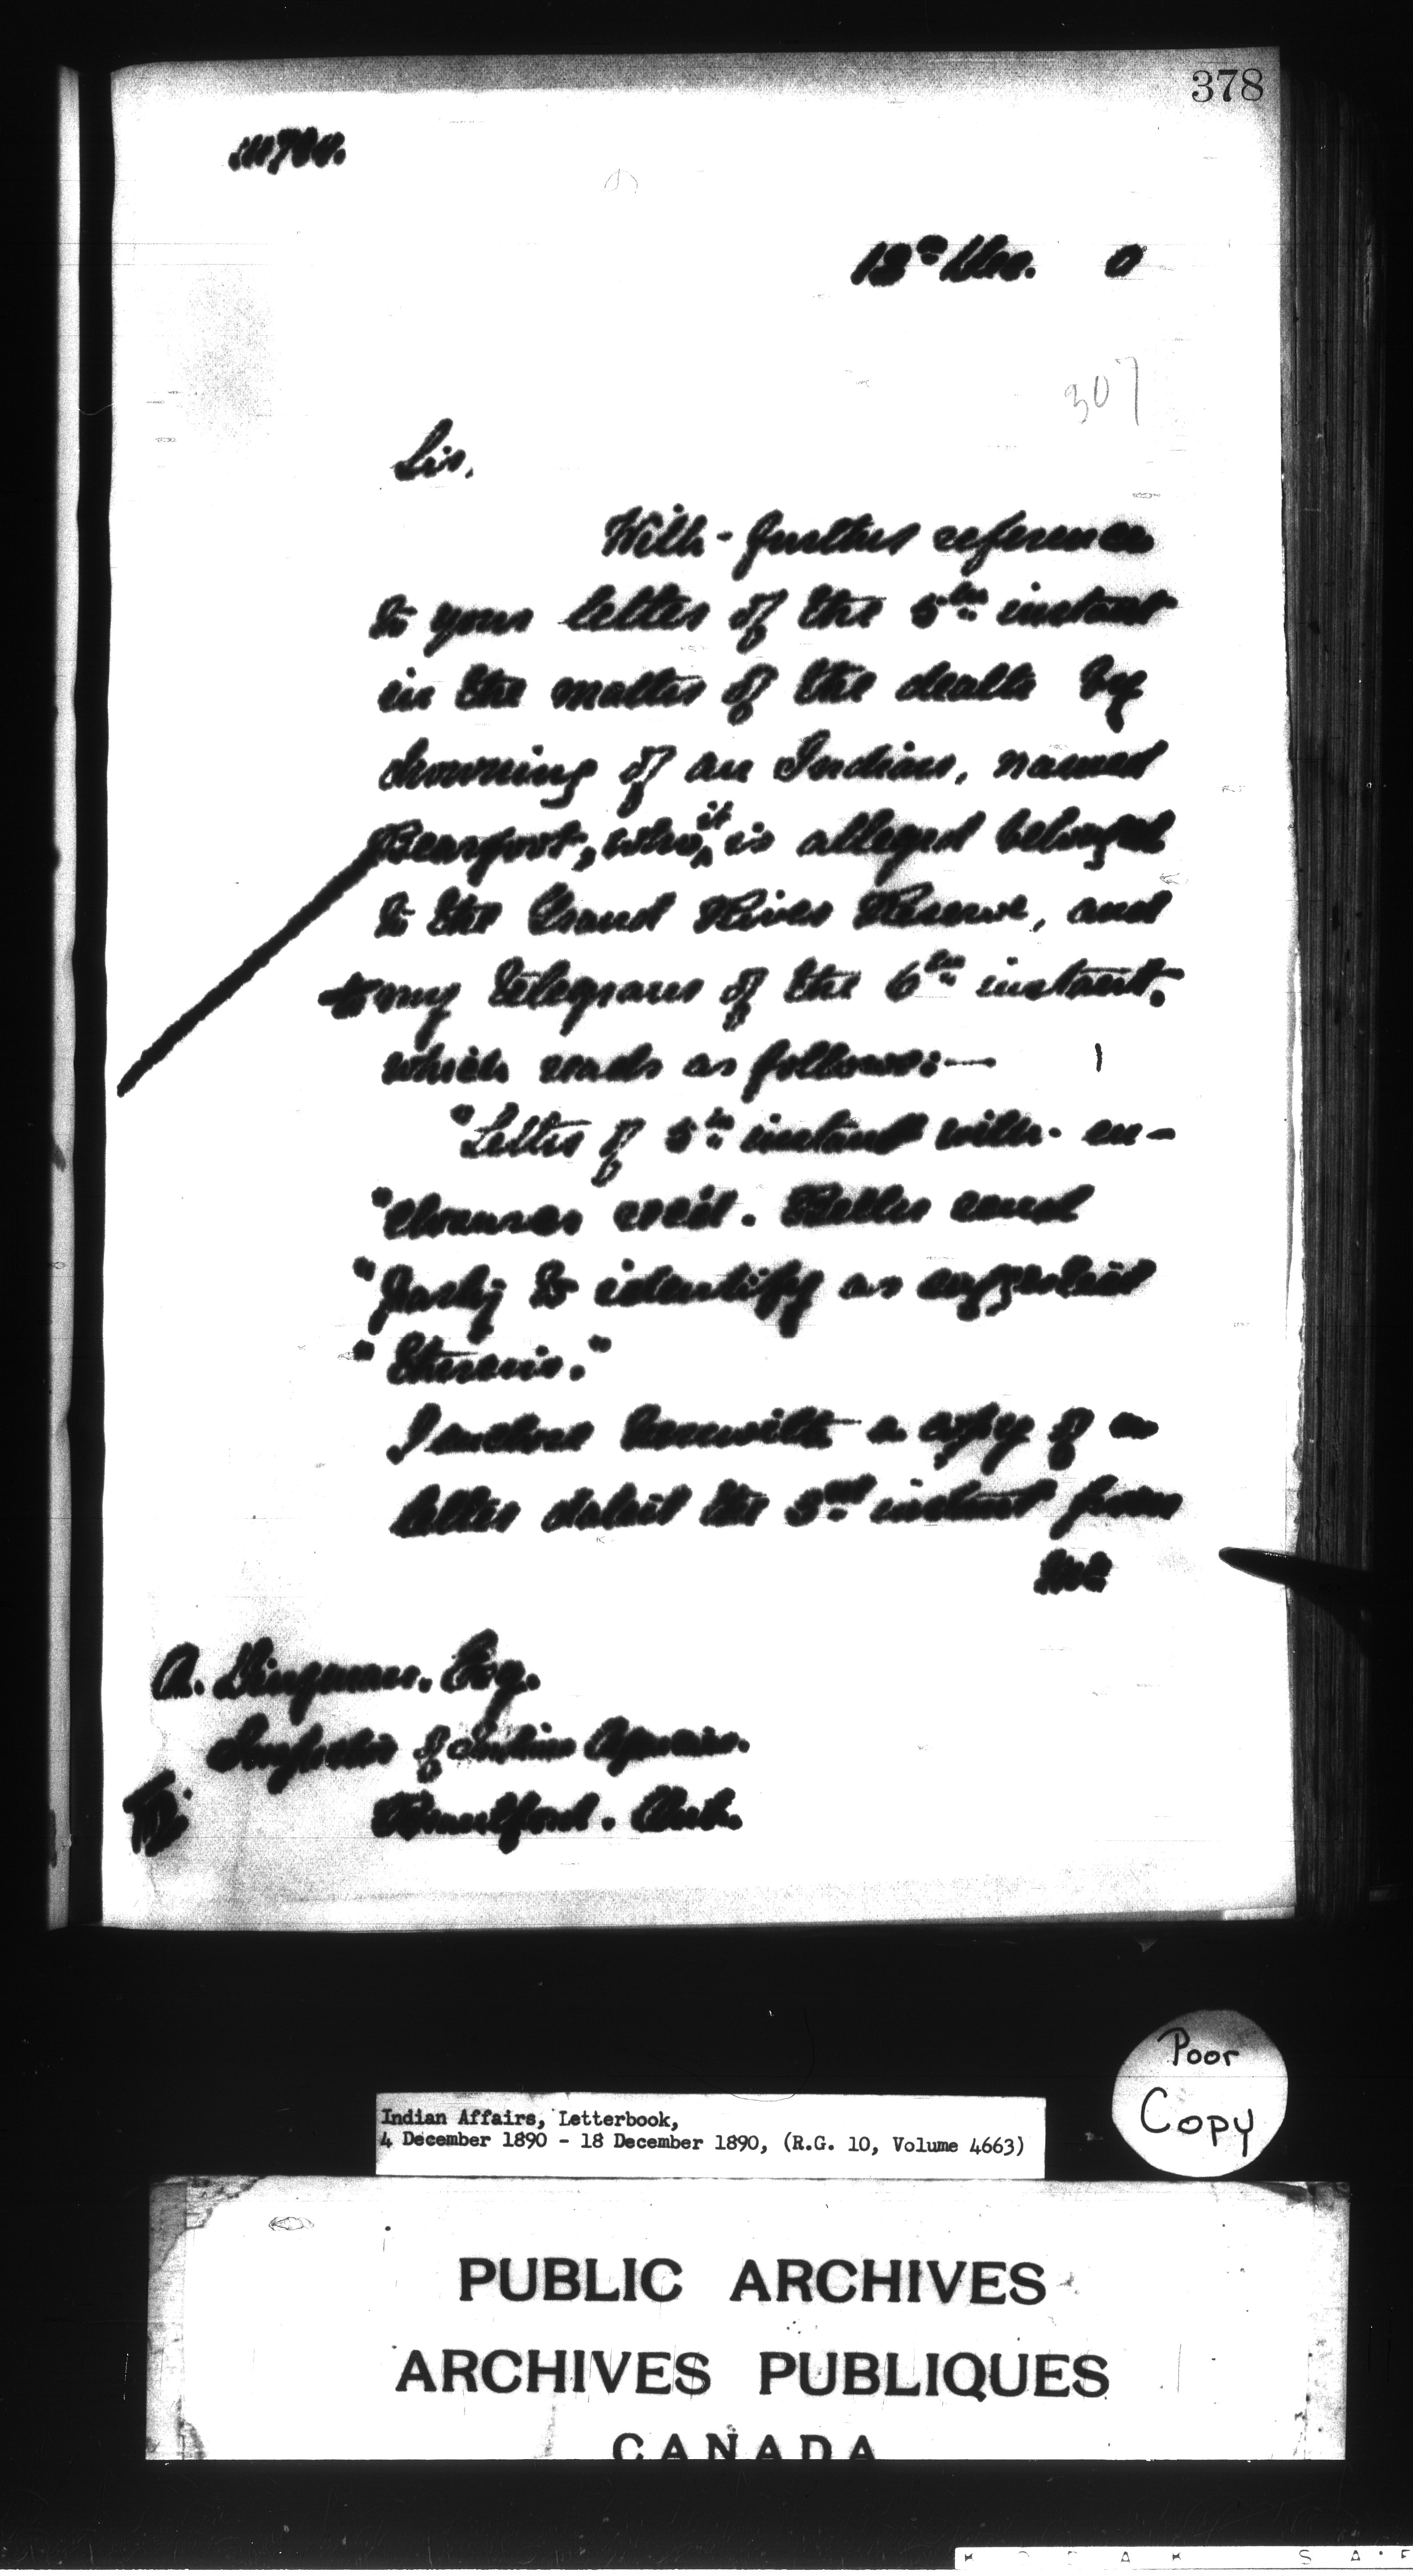 378
12th Dec. 0
307
Sir,
With further reference
to your letter of the 5th instant
in the matter of the death by
drowning of an Indian, named
Bearfoot, who, it is alleged belonged
to the Grand River Reserve, and
to my telegram of the 6th instant,
which reads as follows:—
"Letter of 5th instant with en-
"closures rec'd. Better send
"party to identify as suggested
"therein."
I enclose herewith a copy of a
letter dated the 3rd instant from
A. Dingman, Esq.
Inspector of Indian Agencies.
Brantford. Ont.
Poor
Copy
Indian Affairs, Letterbook,
4 December 1890 - 18 December 1890, (R.G. 10, Volume 4663)
PUBLIC ARCHIVES
ARCHIVES PUBLIQUES
CANADA
KODAK SAF